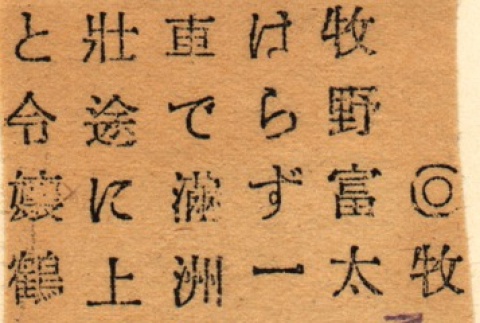 ◎牧
牧野富太
はらず一
車で滿洲
壯途に上
と令孃鶴